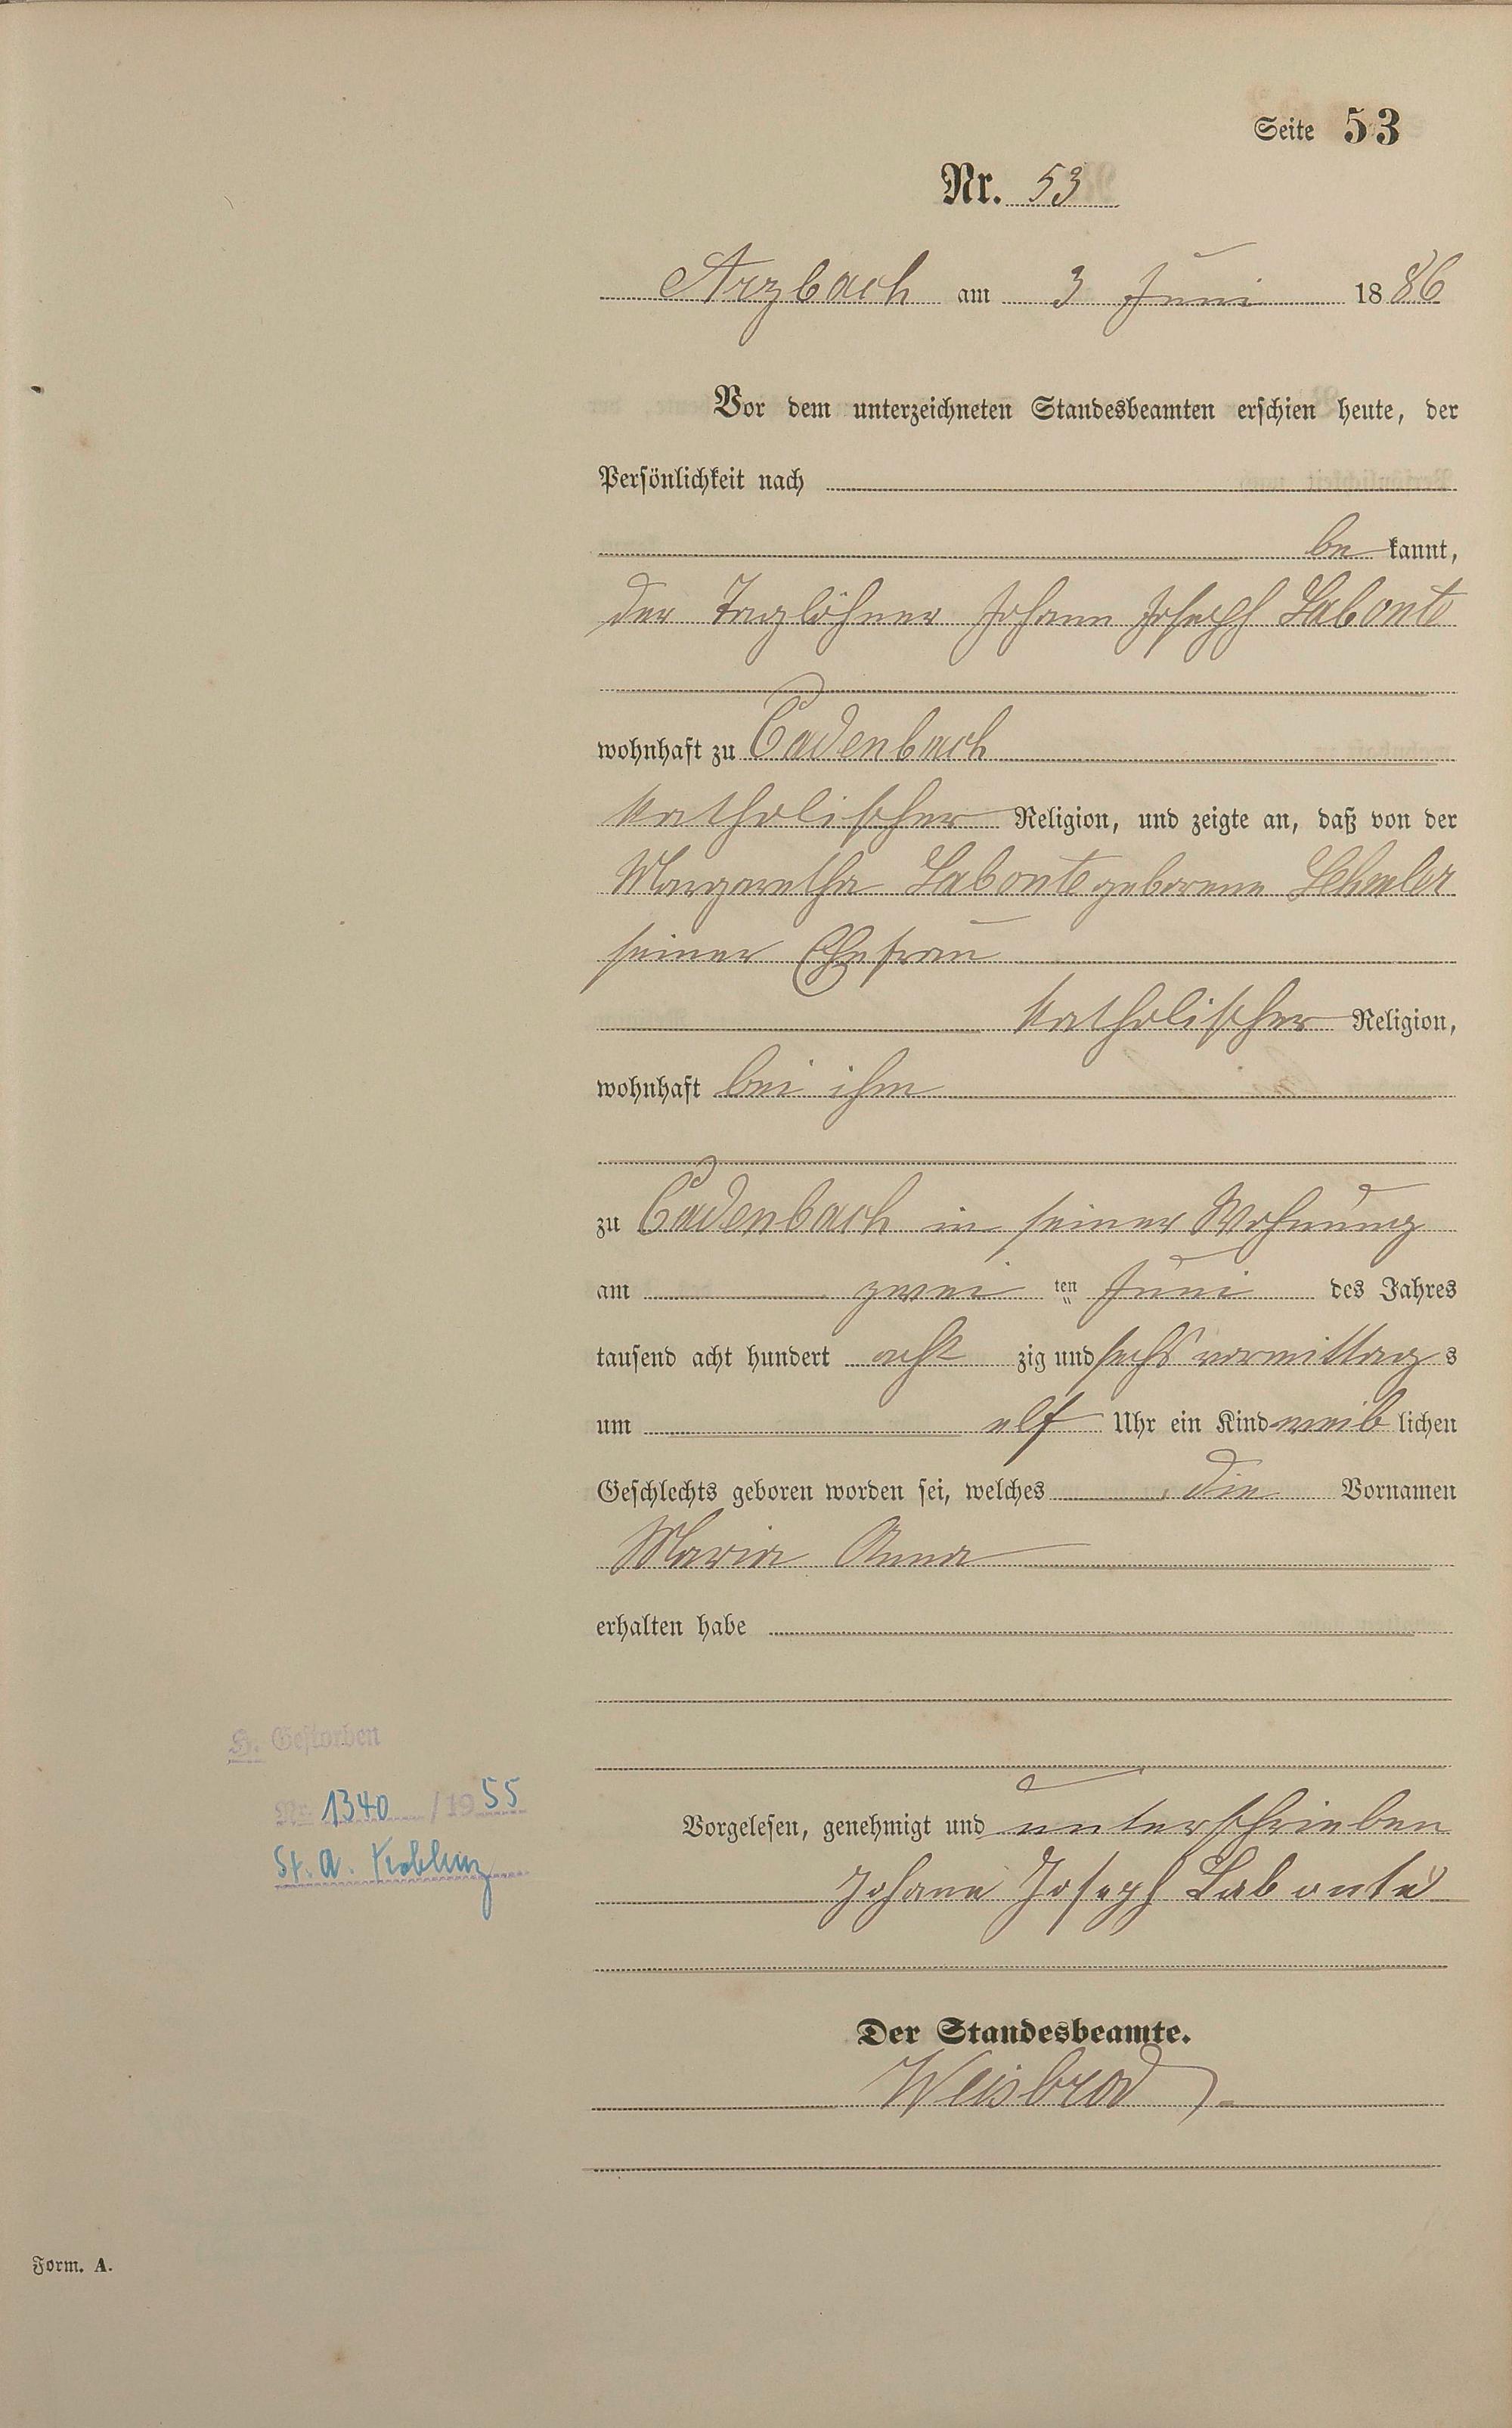 Seite 53
Nr. 53
Arzbach am 3 Juni 1886
Vor dem unterzeichneten Standesbeamten erschien heute, der
Persönlichkeit nach
be kannt,
der Taglöhner Johann Joseph Labonte
wohnhaft zu Cadenbach
katholischer Religion, und zeigte an, daß von der
Margaretha Labonte geborene
seiner Ehefrau
katholischer Religion,
wohnhaft bei ihm
zu Cadenbach in seiner Wohnung
am zwei ten Juni des Jahres
tausend acht hundert acht zig und sechs vormittag s
um elf Uhr ein Kind weib lichen
Geschlechts geboren worden sei, welches die Vornamen
Maria Anna
erhalten habe
H. Gestorben
Nr. 1340 / 1955
St. A. Koblenz
Vorgelesen, genehmigt und unterschrieben
Johann Joseph Labonté
Der Standesbeamte.
Weisbrod
Form. A.